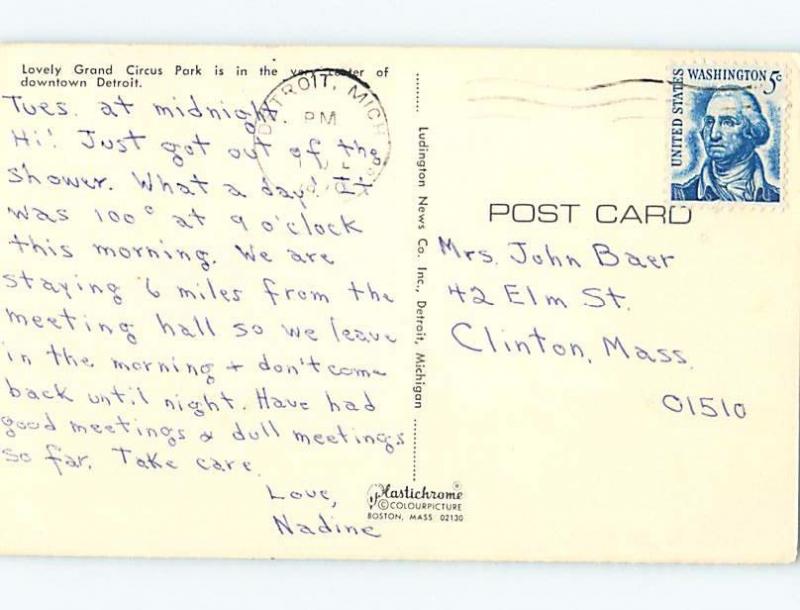 Lovely Grand Circus Park is in the very center of
downtown Detroit.
Tues. at midnight.
Hi! Just got out of the
shower. What a day! It
was 100° at 9 o'clock
this morning. We are
staying 6 miles from the
meeting hall so we leave
in the morning + don't come
back until night. Have had
good meetings & dull meetings
so far. Take care.
Love,
Nadine
DETROIT, MICH
PM
Ludington News Co. Inc., Detroit, Michigan
Plastichrome®
© COLOURPICTURE
BOSTON, MASS 02130
UNITED STATES
WASHINGTON 5c
POST CARD
Mrs. John Baer
42 Elm St.
Clinton, Mass.
01510